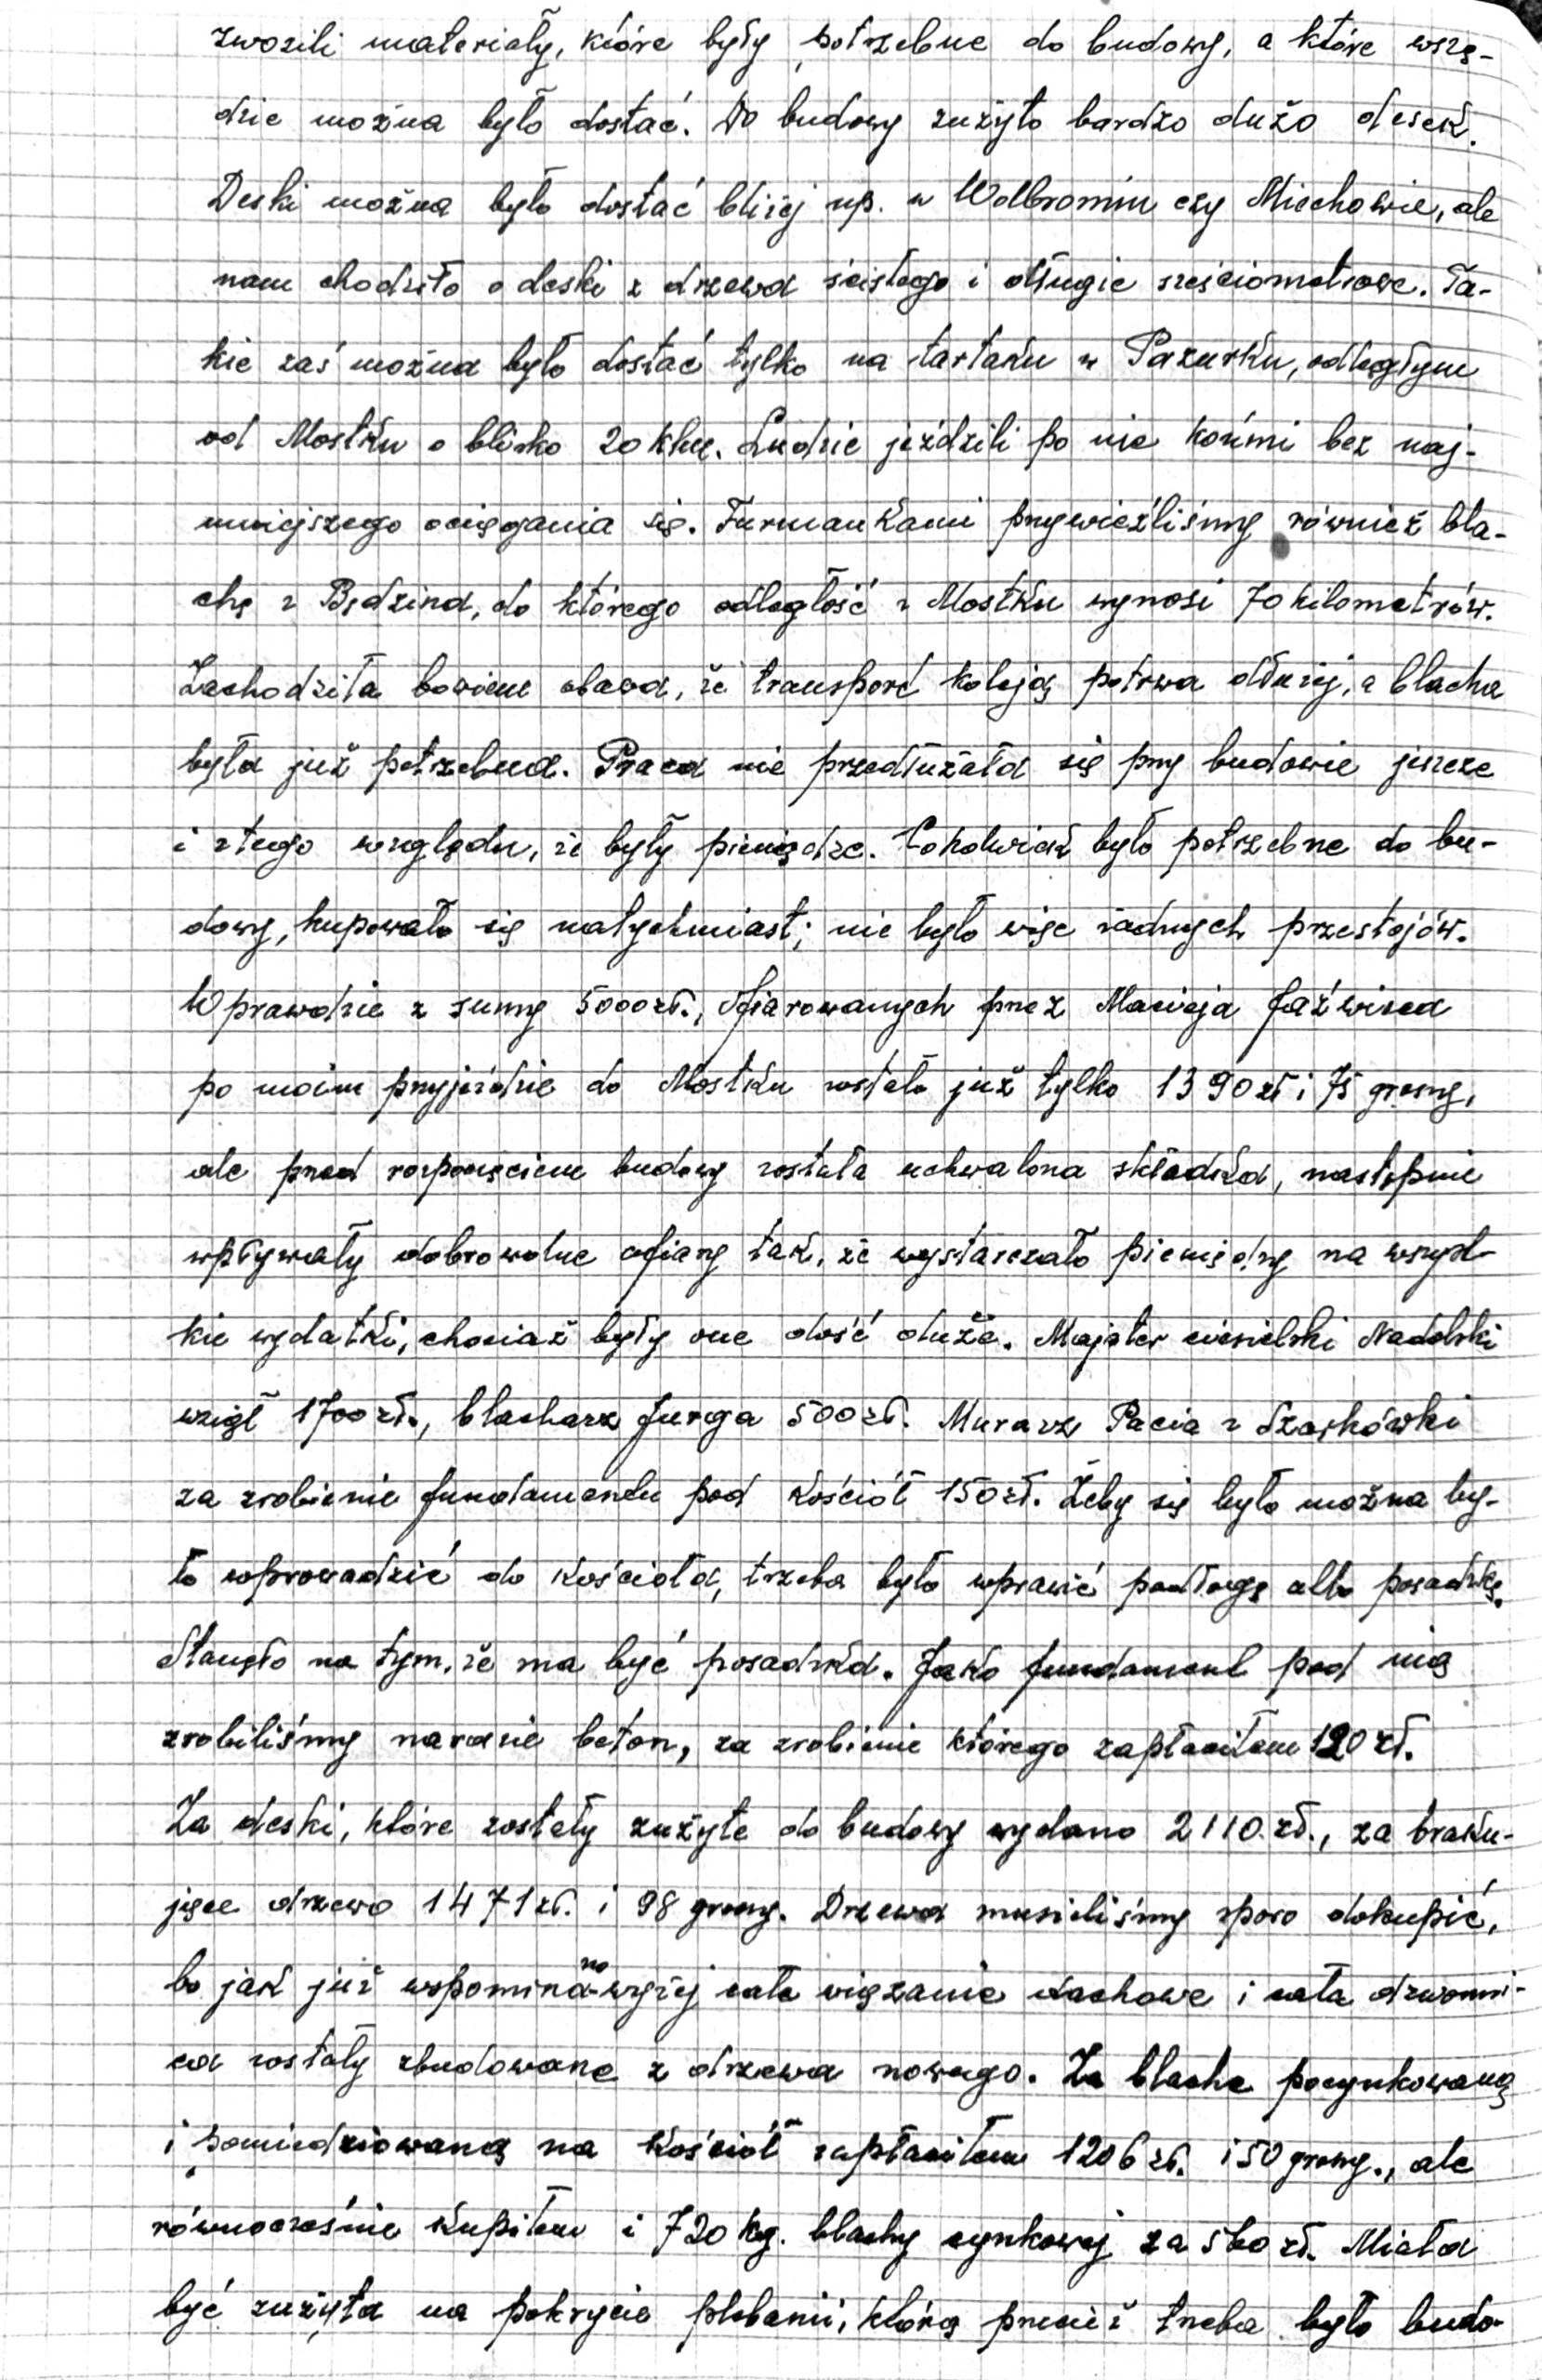 zwozili materiały, które były potrzebne do budowy, a które wszę-
dzie można było dostać. Do budowy zużyto bardzo dużo desek.
Deski można było dostać bliżej np. w Wolbromiu czy Miechowie, ale
nam chodziło o deski z drzewa ścisłego i długie sześciometrowe. Ta-
kie zaś można było dostać tylko na tartaku w Pazurku, odległym
od Mostku o blisko 20 klm. Ludzie jeździli po nie końmi bez naj-
mniejszego ociągania się. Furmankami przywieźliśmy również bla-
chę z Będzina, do którego odległość z Mostku wynosi 70 kilometrów.
Zachodziła bowiem obawa, że transport koleją potrwa dłużej, a blacha
była już potrzebna. Praca nie przedłużała się przy budowie jeszcze
i z tego względu, że były pieniądze. Cokolwiek było potrzebne do bu-
dowy, kupowało się natychmiast; nie było więc żadnych przestojów.
Wprawdzie z sumy 5000 zł., ofiarowanych przez Macieja Jaźwieca
po moim przyjeździe do Mostku zostało już tylko 1390 zł i 75 groszy,
ale przed rozpoczęciem budowy została uchwalona składka, następnie
wpływały dobrowolne ofiary tak, że wystarczało pieniędzy na wszyst-
kie wydatki, chociaż były one dość duże. Majster ciesielski Nadolski
wziął 1700 zł., blacharz Jurga 500 zł. Murarz Pacia z Szarkówki
za zrobienie fundamentu pod kościół 150 zł. Żeby się było można by-
ło wprowadzić do kościoła, trzeba było wprawić podłogę albo posadzkę.
Stanęło na tym, że ma być posadzka. Jako fundament pod nią
zrobiliśmy narazie beton, za zrobienie którego zapłaciłem 120 zł.
Za deski, które zostały zużyte do budowy wydano 2110 zł., za braku-
jące drzewo 1471 zł. i 98 groszy. Drzewa musieliśmy sporo dokupić,
bo jak już wspominano wyżej całe wiązanie dachowe i cała dzwonni-
ca zostały zbudowane z drzewa nowego. Za blachę pocynkowaną
i pomiedziowaną na kościół zapłaciłem 1206 zł. i 50 groszy., ale
równocześnie kupiłem i 720 kg. blachy cynkowej za 560 zł. Miała
być zużyta na pokrycie plebanii, którą przecież trzeba było budo-